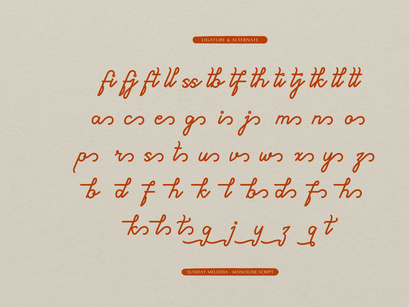 LIGATURE & ALTERNATE
fi fj ft ll ss tb tf th ti tj tk tl tt
as cs es gs is js ms ns os
ps rs ss ts us vs ws xs ys zs
b d f h k l bs ds fs hs
ks ls ts g j y z q t
SUNDAY MELODIS - MONOLINE SCRIPT